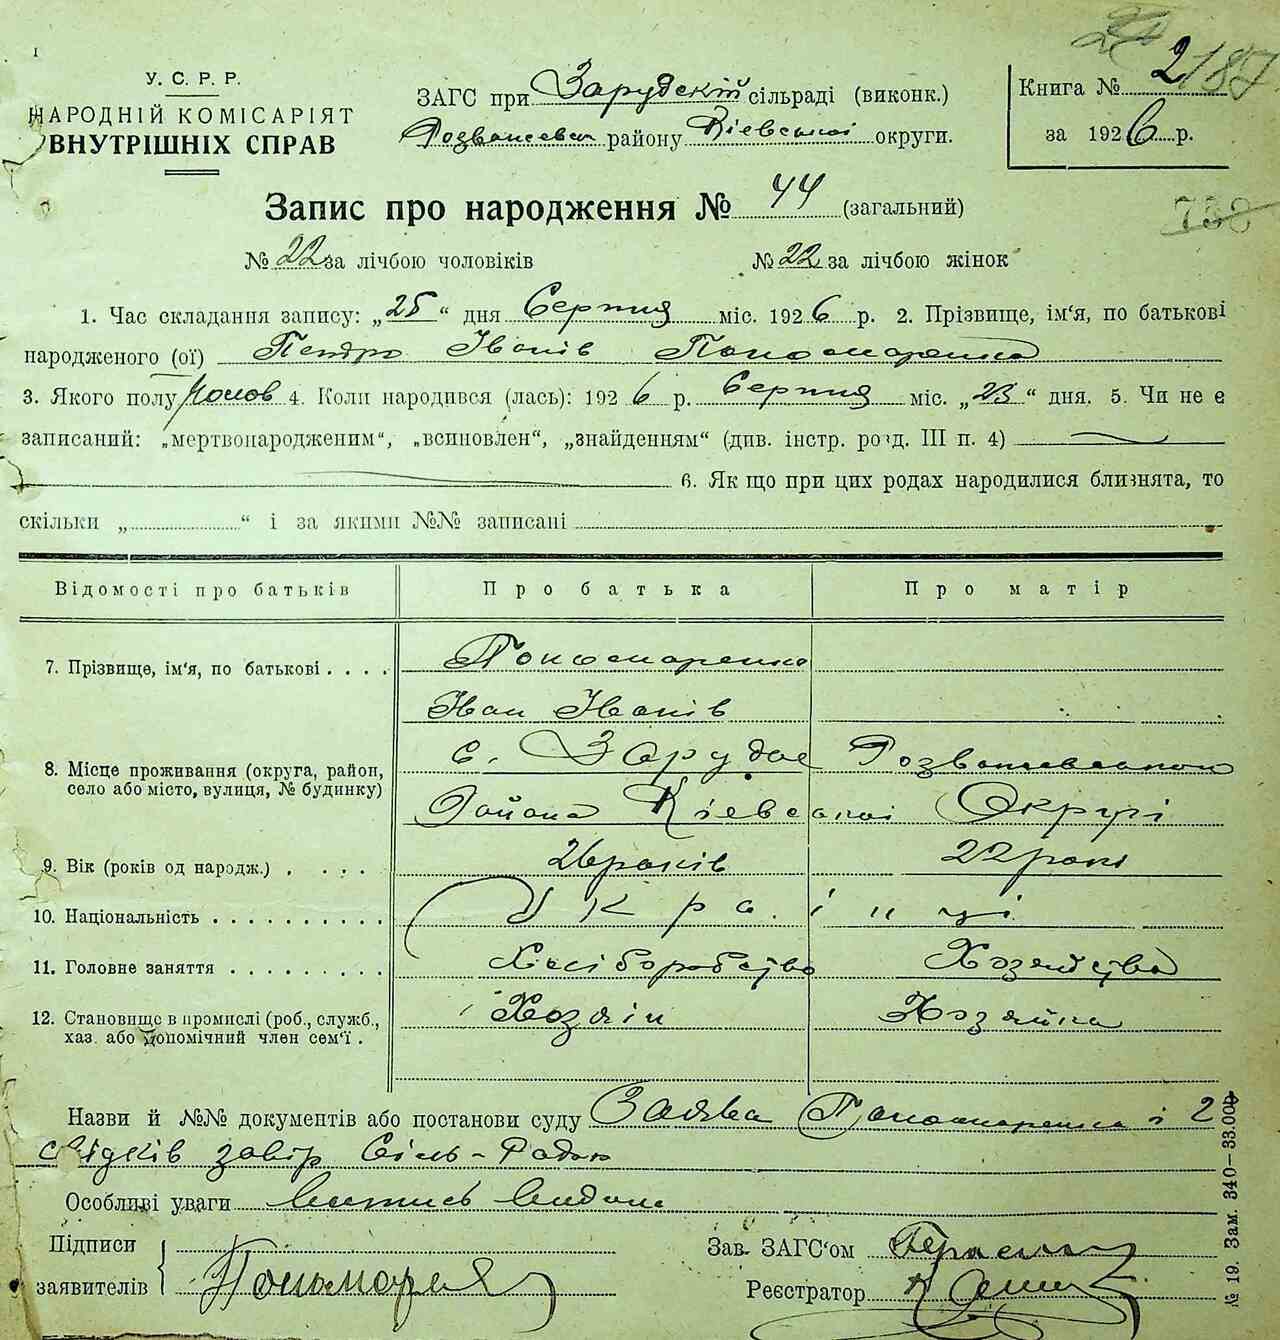 1
У. С. Р. Р.
НАРОДНІЙ КОМІСАРІЯТ
ВНУТРІШНІХ СПРАВ
ЗАГС при Зарудскій сільраді (виконк.)
району Киевської округи.
Книга № 2 187
за 1926 р.
Запис про народження № 44 (загальний)
738
№ 22 за лічбою чоловіків № 22 за лічбою жінок
1. Час складання запису: „25“ дня Серпня міс. 1926 р. 2. Прізвище, ім‘я, по батькові
народженого (ої) Петро Іванів Пономаренко
3. Якого полу 4. Коли народився (лась): 1926 р. Серпня міс. „23“ дня. 5. Чи не є
записаний: „мертвонародженим“, „всиновлен“, „знайденням“ (див. інстр. розд. III п. 4)
6. Як що при цих родах народилися близнята, то
скільки „ “ і за якими №№ записані
Відомості про батьків Про батька Про матір
7. Прізвище, ім‘я, по батькові . . . . Пономаренко
Іван Іванів
8. Місце проживання (округа, район, с. Зарудое Розважевського
село або місто, вулиця, № будинку) Района Киевської Округі
9. Вік (років од народж.) . . . . . 26 років 22 роки
10. Національність . . . . . . . . . . Українці
11. Головне заняття . . . . . . . . . Хліборобство Хозяйство
12. Становище в промислі (роб., служб., Хозяін Хозяйка
хаз. або допомічний член сем‘ї .
Назви й №№ документів або постанови суду Заява Пономаренка і 2
свідків завір Сіль-Радою
Особливі уваги
Підписи
заявителів Пономарен
Зав. ЗАГС‘ом
Реєстратор
№ 19. Зам. 340—33.000